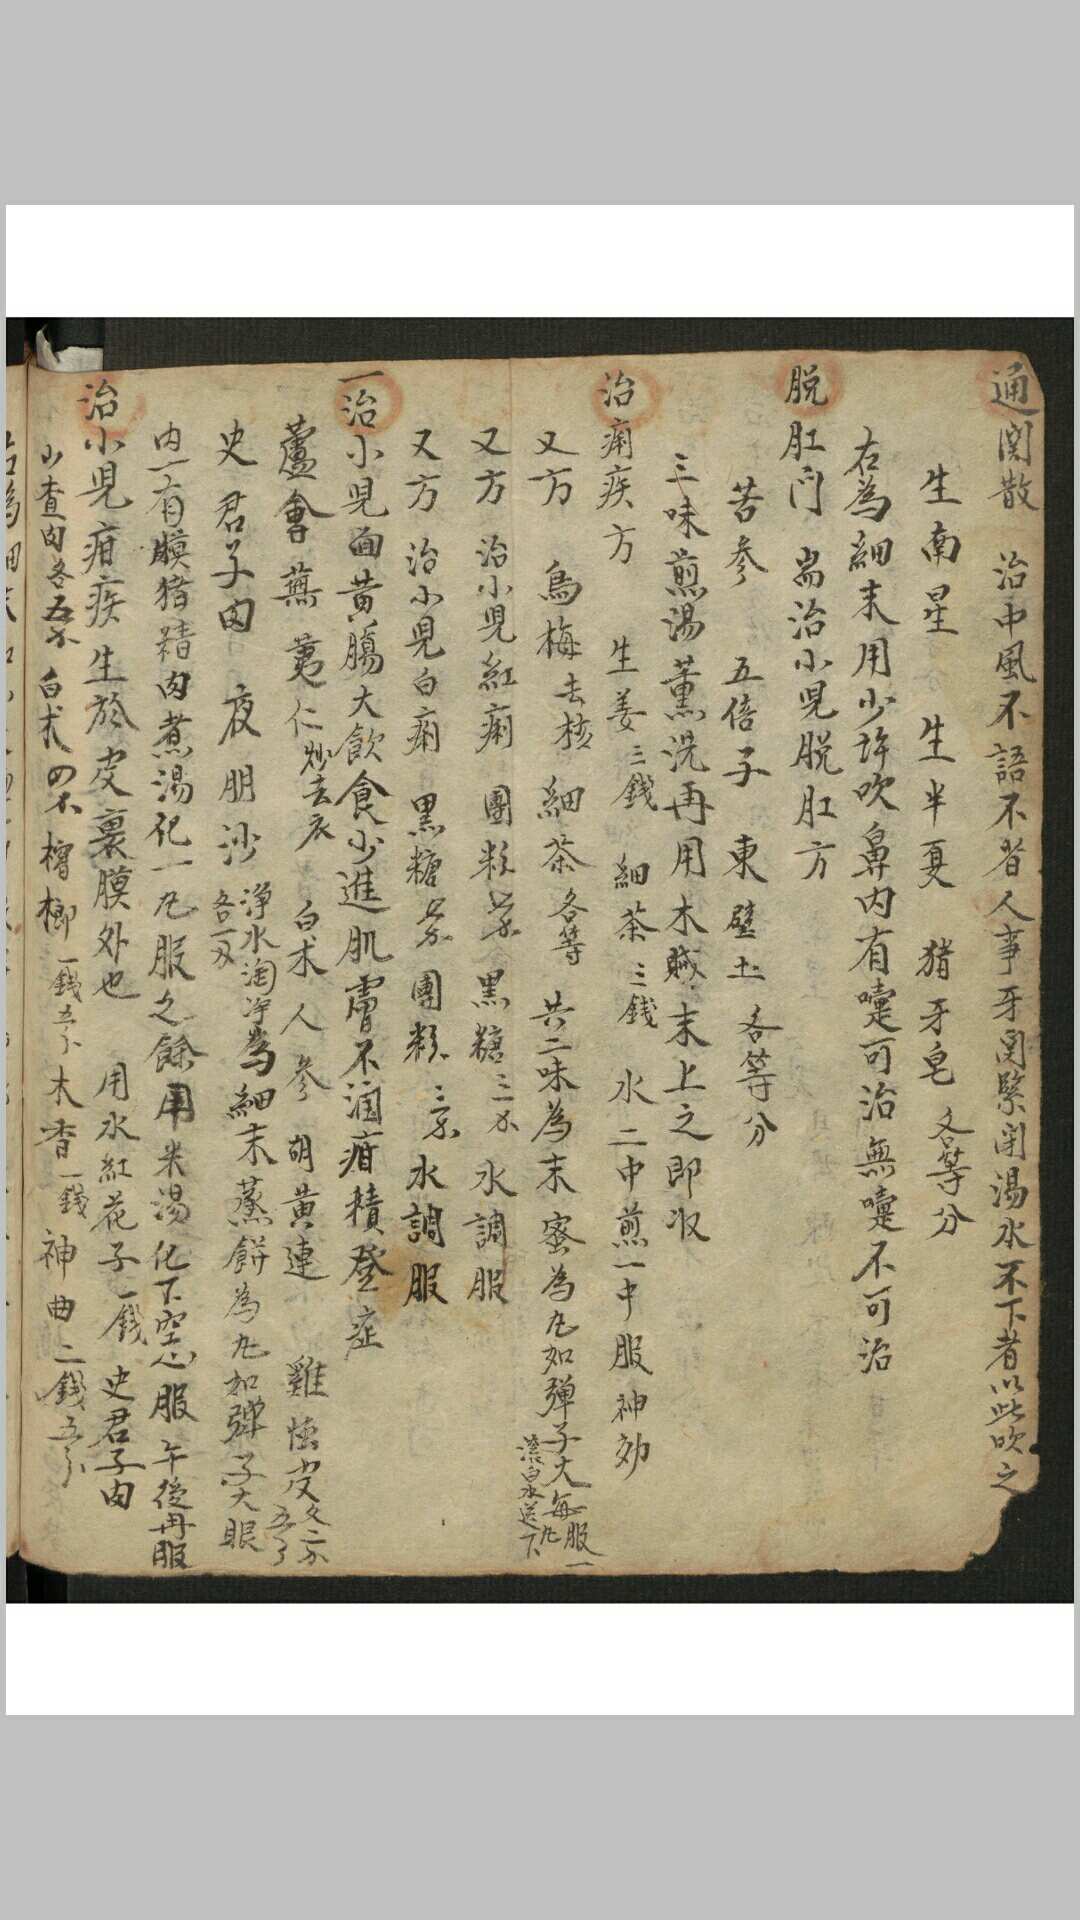 通関散 治中風不語不省人事牙関緊闭湯水不下者以此吹之
生南星 生半夏 猪牙皂 各等分
右為細末用少許吹鼻内有嚏可治無嚏不可治
脱肛门 耑治小児脱肛方
苦参 五倍子 東壁土 各等分
三味煎湯薰洗再用木贼末上之即收
治痢疾方 生姜三錢 細茶三錢 水二中煎一中服神効
又方 烏梅去核 細茶各等 共二味為末蜜為丸如弹子大每服一丸滚白水送下
又方 治小児紅痢 團粉 黑糖三 水調服
又方 治小児白痢 黑糖 團粉 水調服
一治小児面黄腸大飲食少進肌膚不潤疳積登症
蘆會 蕪荑仁炒去衣 白术 人参 胡黄連 雞 皮
史君子肉 夜明沙净水淘净 為細末蒸餅為丸如弹子大眼
内一有膜猪精肉煮湯化一丸服之餘用米湯化下空心服午後再服
治小児疳疾生於皮裏膜外也 用水紅花子一錢 史君子肉
山查肉各五 白术 檳榔一錢五分 木香一錢 神曲二錢五分
右為細末